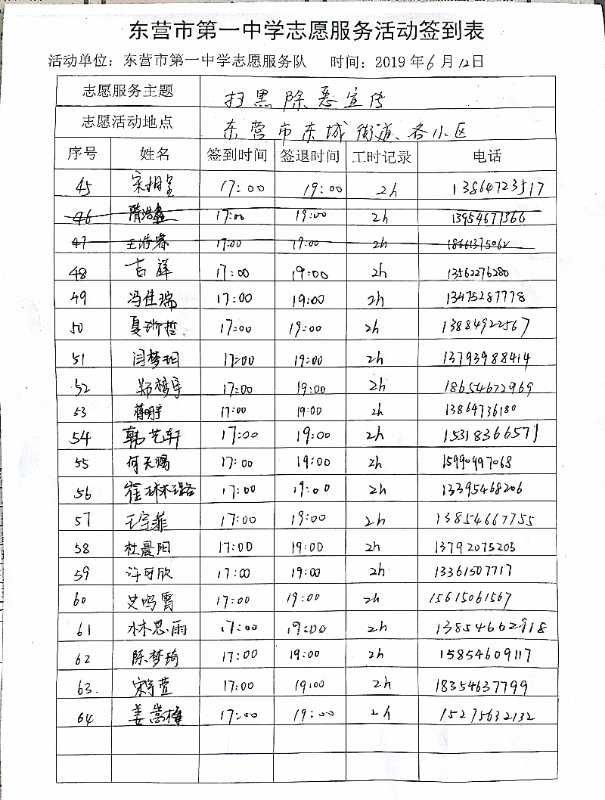 东营市第一中学志愿服务活动签到表
活动单位：东营市第一中学志愿服务队 时间：2019年6月12日
志愿服务主题 扫黑除恶宣传
志愿活动地点 东营市东城街道、各小区
序号 姓名 签到时间 签退时间 工时记录 电话
45 17:00 19:00 2h 13864723517
46 17:00 19:00 2h 13954671366
47 17:00 19:00 2h
48 吉祥 17:00 19:00 2h 13562276280
49 冯佳瑞 17:00 19:00 2h 13475287778
50 17:00 19:00 2h 13884922567
51 闫梦玥 17:00 19:00 2h 13793988414
52 17:00 19:00 2h 18654672969
53 17:00 19:00 2h 13864736180
54 韩艺轩 17:00 19:00 2h 15318366571
55 何天赐 17:00 19:00 2h 15990497068
56 17:00 19:00 2h 13395468206
57 王宇菲 17:00 19:00 2h 13854667755
58 杜晨阳 17:00 19:00 2h 13792075205
59 许可欣 17:00 19:00 2h 13361507717
60 17:00 19:00 2h 15615061567
61 林思雨 17:00 19:00 2h 13854662918
62 陈梦琦 17:00 19:00 2h 15854609117
63. 17:00 19:00 2h 18354637799
64 17:00 19:00 2h 15275632132